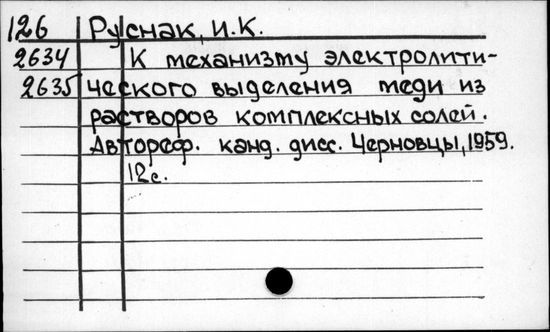 126 Руснак, И.К.
2634 К механизму электролити-
2635 ческого выделения меди из
растворов комплексных солей.
Автореф. канд. дисс. Черновцы, 1959.
12с.